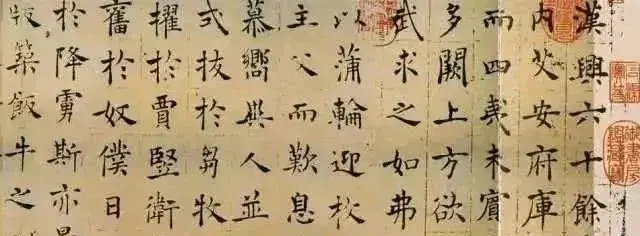 漢興六十餘
內艾安府庫
而四夷未賓
多闕上方欲
武求之如弗
以蒲輪迎枚
主父而歎息
慕嚮異人並
式拔於芻牧
擢於賈豎衛
奮於奴僕日
於降虜斯亦
版築飯牛之